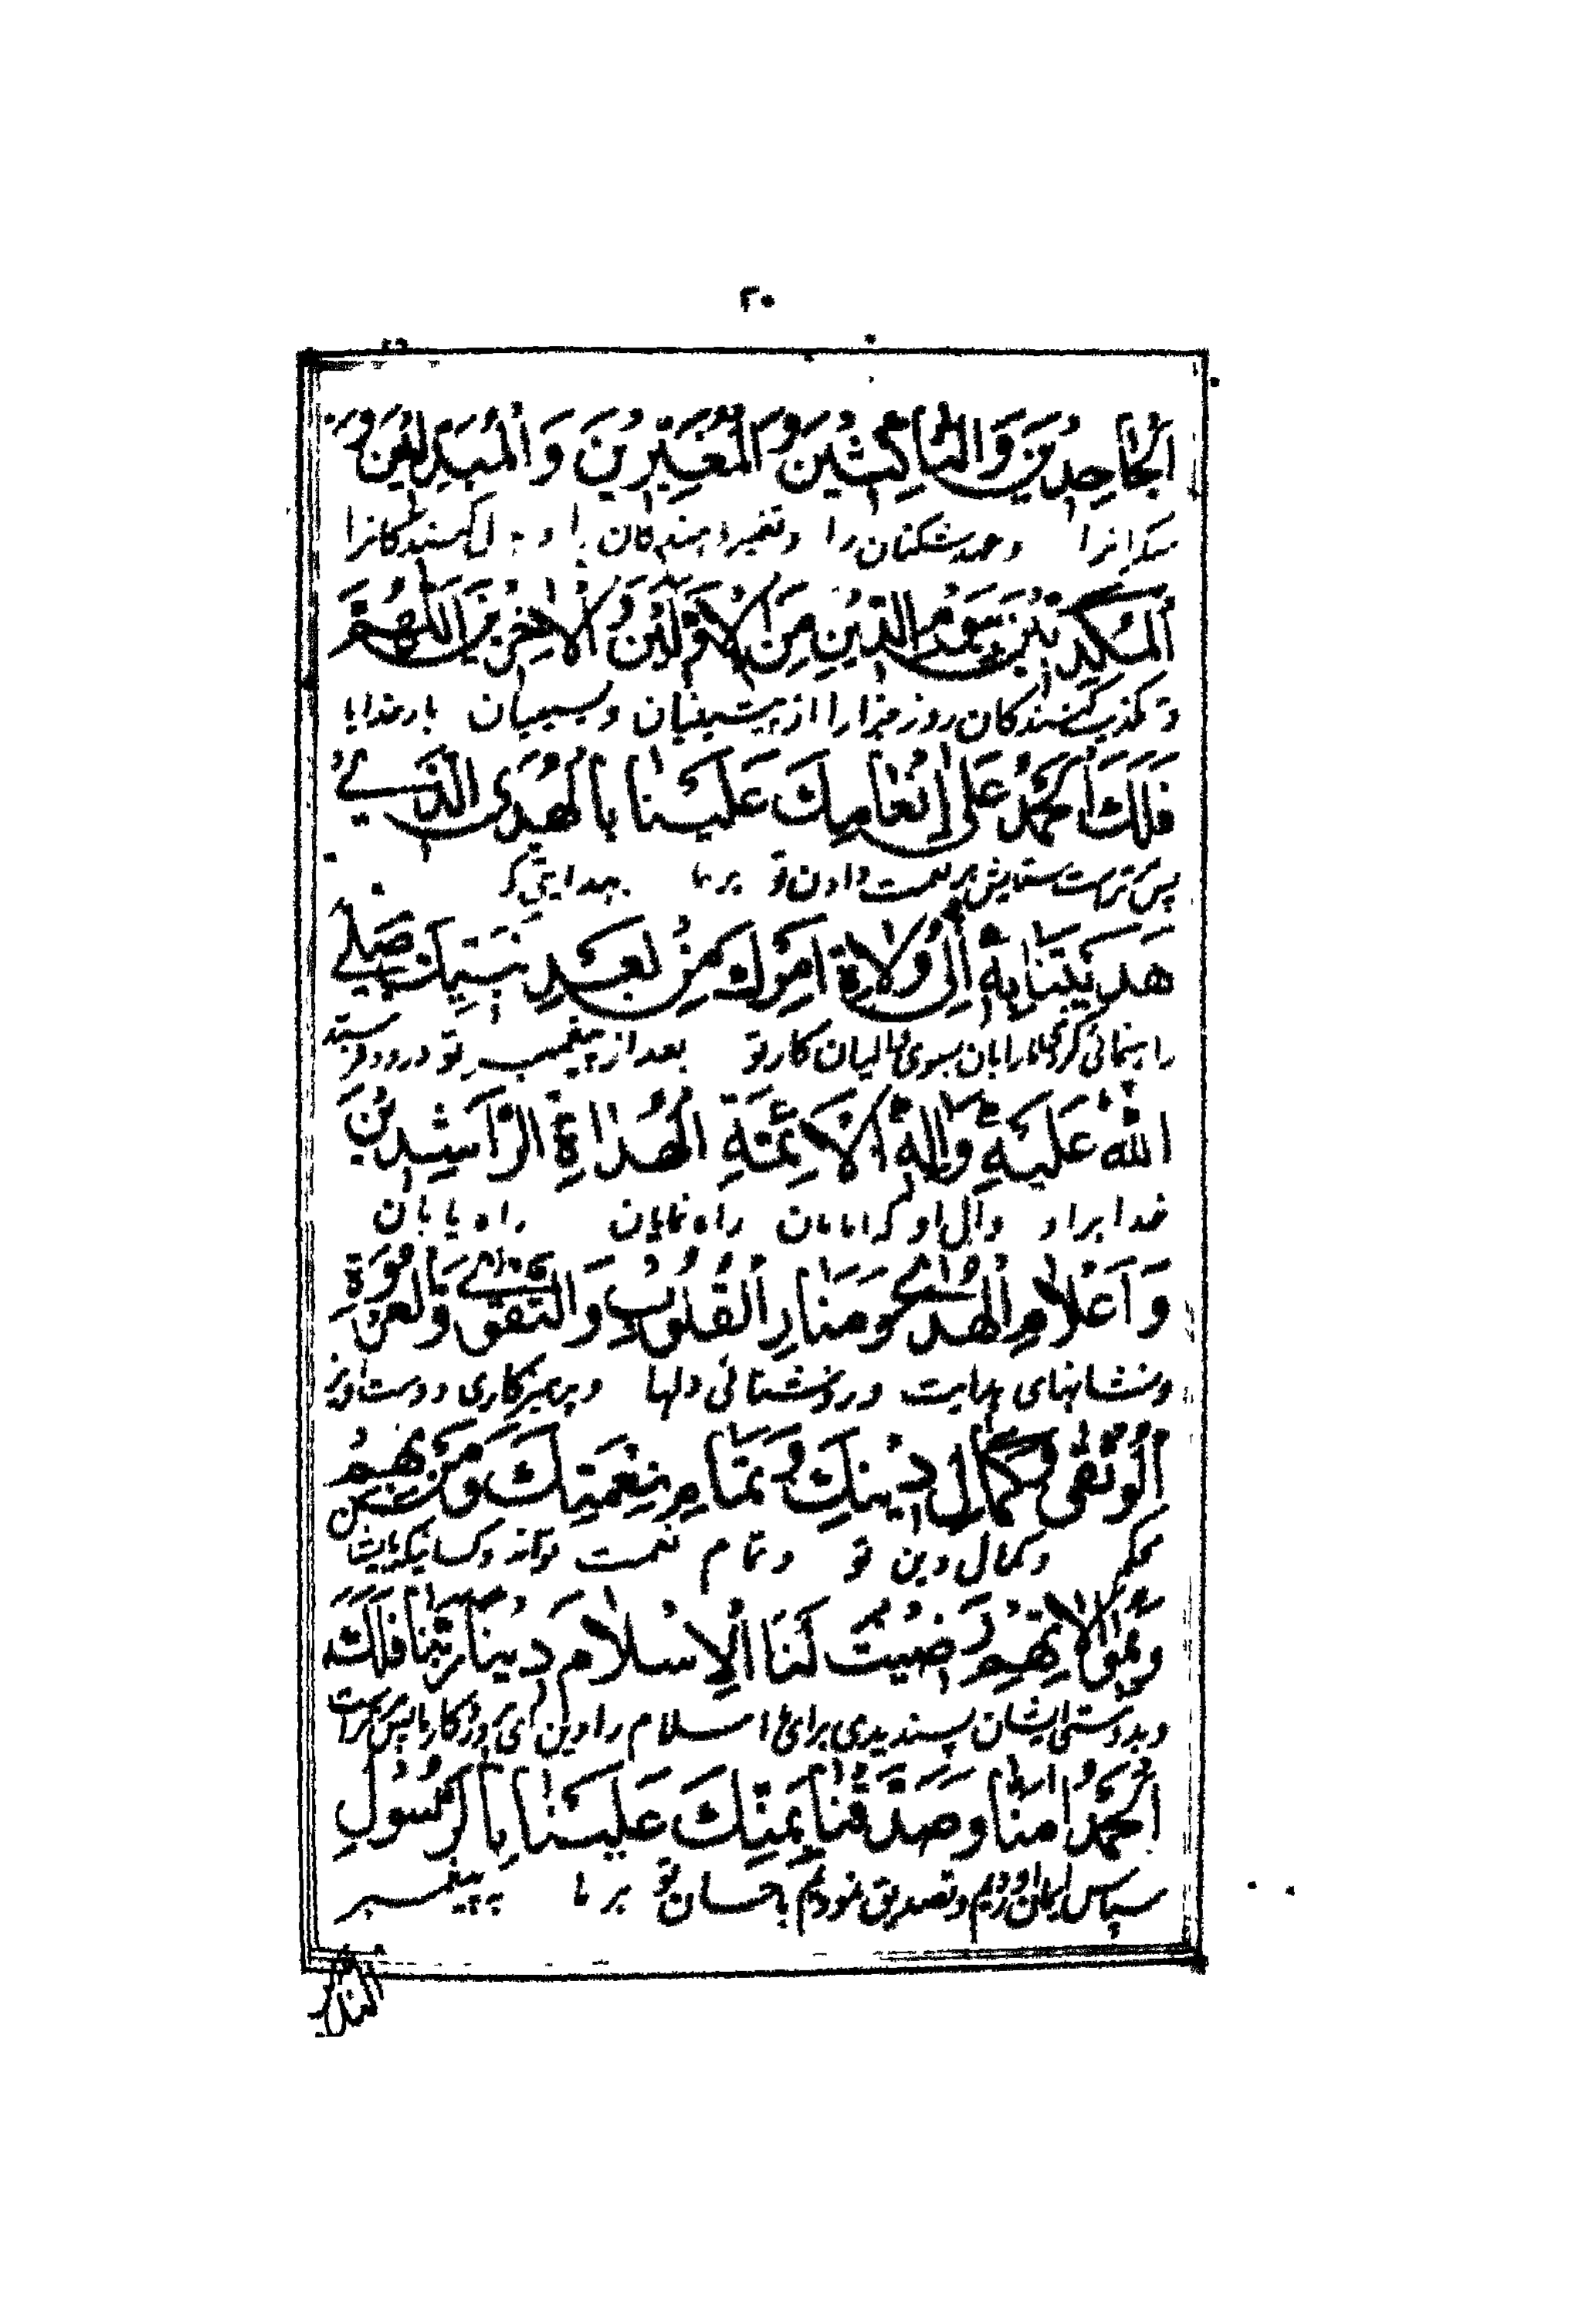 ٢٠
الْجَاحِدِينَ وَالنَّاكِثِينَ وَالْمُغَيِّرِينَ وَالْمُبَدِّلِينَ وَ
منکرانرا وعهد شکنان را و تغییر دهندگان را و بدل کنندگانرا
الْمُكَذِّبِينَ بِيَوْمِ الدِّينِ مِنَ الْأَوَّلِينَ وَالْآخِرِينَ اَللّٰهُمَّ
و تکذیب کنندگان روز جزا را از پیشینیان و پسینیان بار خدایا
فَلَكَ الْحَمْدُ عَلَى إِنْعَامِكَ عَلَيْنَا بِالْهُدَى الَّذِي
پس تراست ستایش بر نعمت دادن تو بر ما بهدایتی که
هَدَيْتَنَا بِهِ إِلَى وُلَاةِ أَمْرِكَ مِنْ بَعْدِ نَبِيِّكَ صَلَّى
راهنمائی کردی ما را بآن بسوی والیان کار تو بعد از پیغمبر تو درود فرستد
اللهُ عَلَيْهِ وَآلِهِ الْأَئِمَّةِ الْهُدَاةِ الرَّاشِدِينَ
خدا بر او و آل او که امامان راه نمایان راه یابان
وَأَعْلَامِ الْهُدَى وَمَنَارِ الْقُلُوبِ وَالتَّقْوَى وَالْعُرْوَةِ
و نشانهای هدایت و روشنائی دلها و پرهیزکاری و دست آویز
الْوُثْقَى وَكَمَالِ دِينِكَ وَتَمَامِ نِعْمَتِكَ وَمَنْ بِهِمْ
محکم و کمال دین تو و تمام نعمت تواند و کسانیکه بایشان
وَبِمُوَالَاتِهِمْ رَضِيتَ لَنَا الْإِسْلَامَ دِينًا رَبَّنَا فَلَكَ
و بدوستی ایشان پسندیدی برای ما اسلام را دین ای پروردگار ما پس تراست
الْحَمْدُ آمَنَّا وَصَدَّقْنَا بِمَنِّكَ عَلَيْنَا بِالرَّسُولِ
سپاس ایمان آوردیم و تصدیق نمودیم باحسان تو بر ما به پیغمبر
النذیر